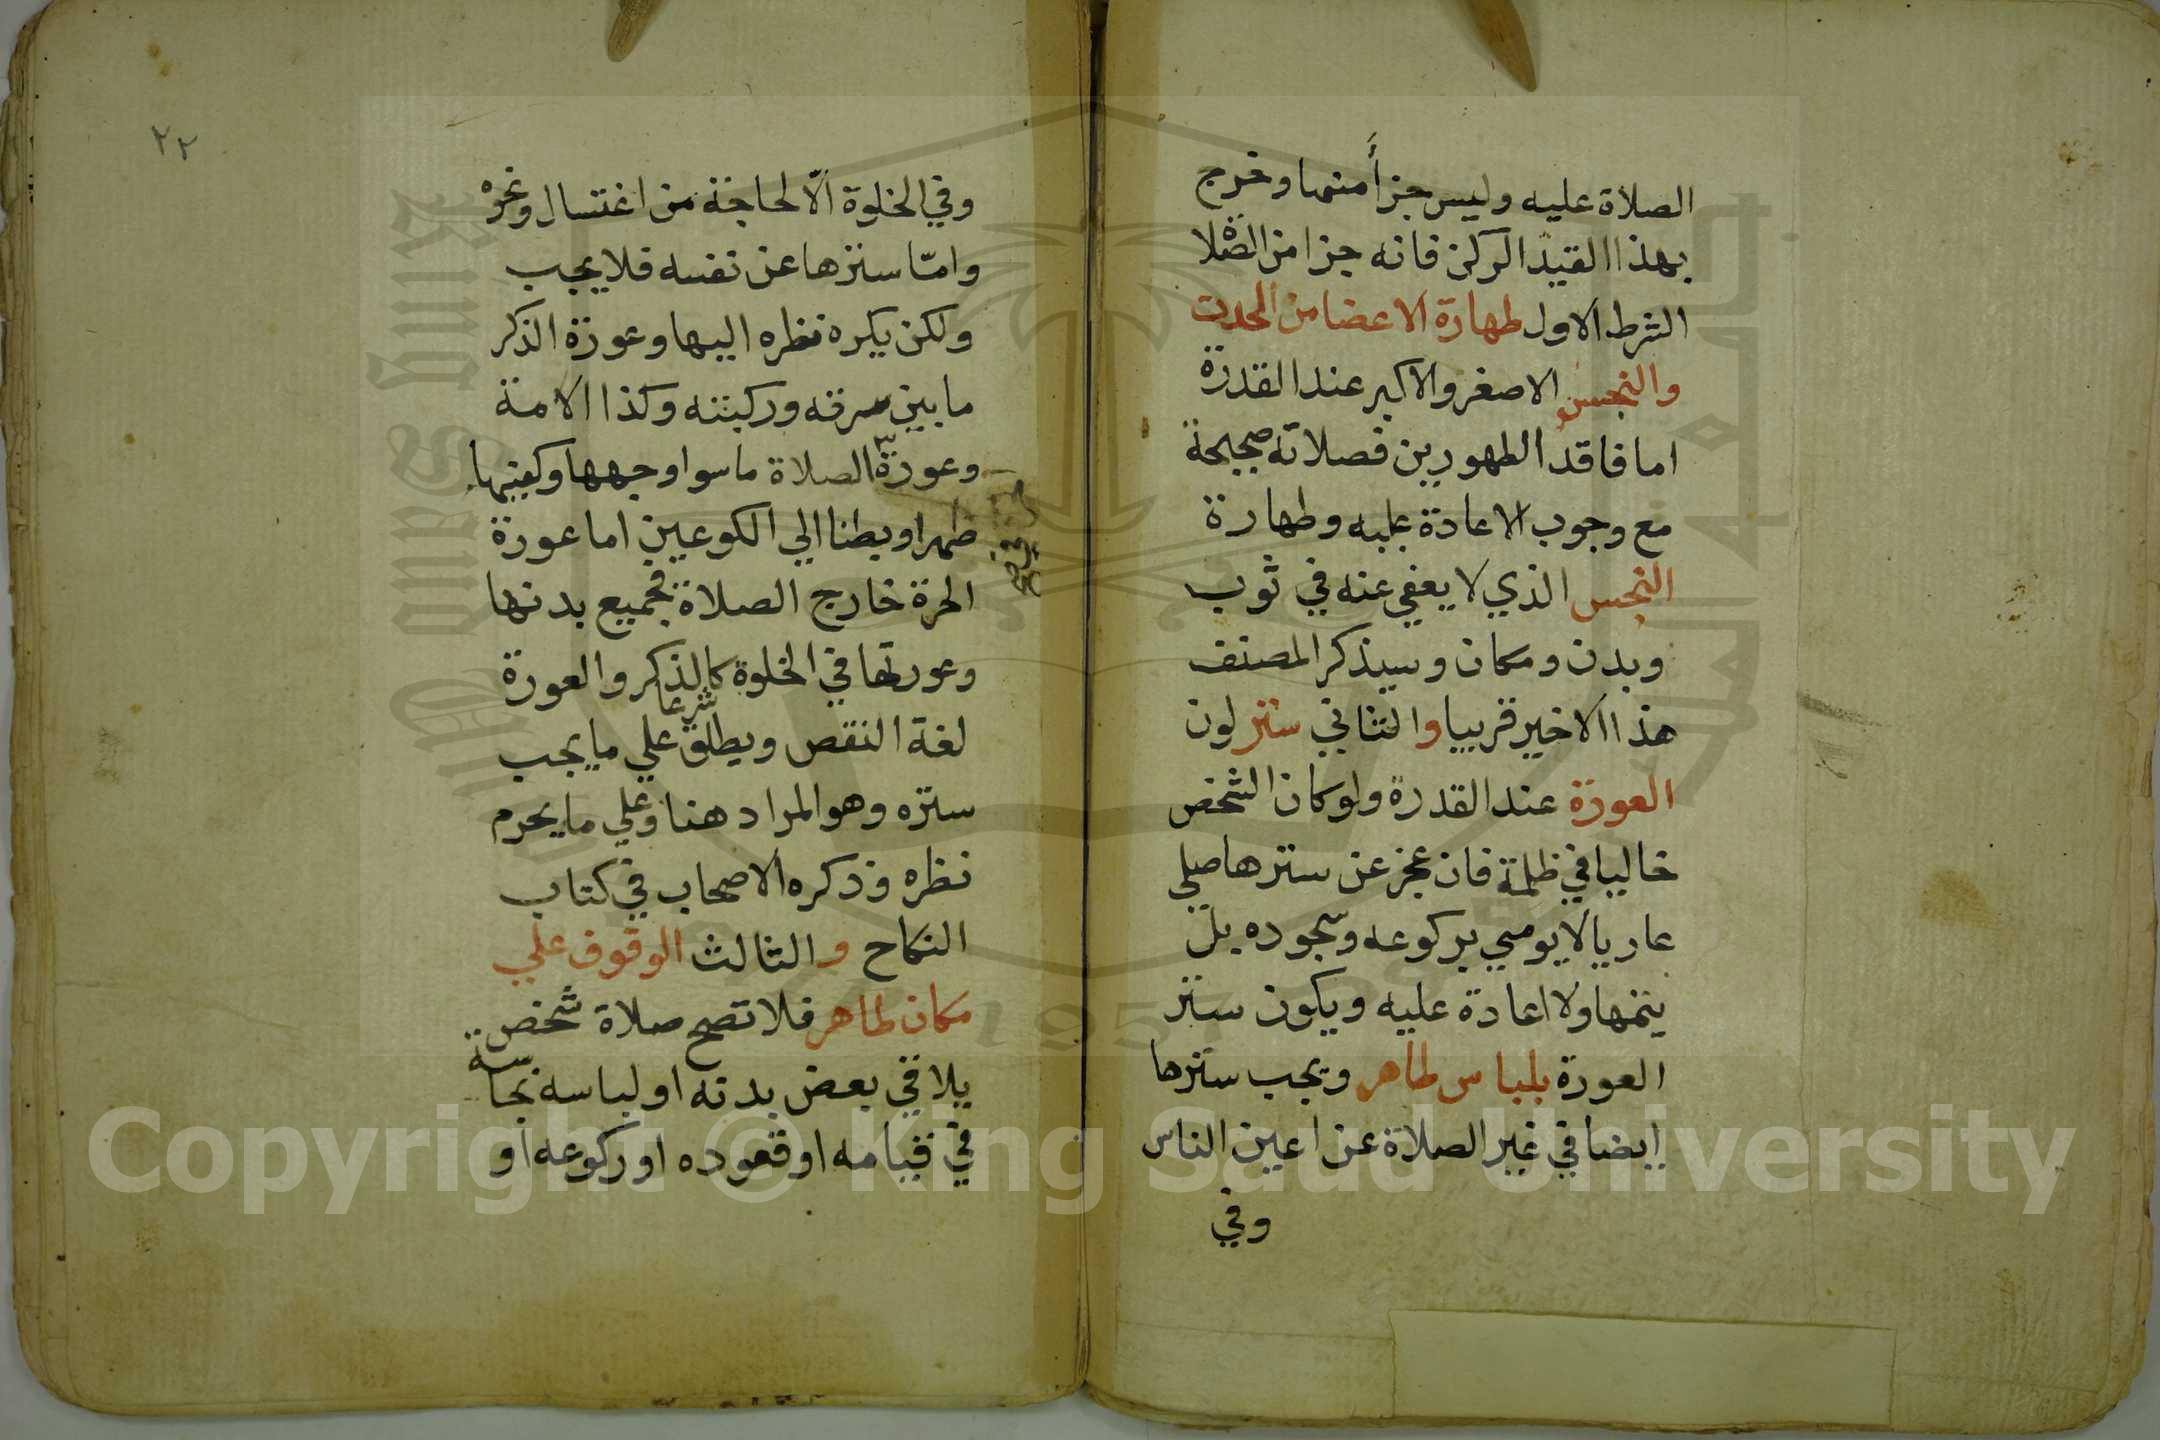 الصلاة عليه وليس جزأ منها وخرج
بهذا القيد الركن فانه جزا من الصلاة
الشرط الاول طهارة الاعضا من الحدث
والنجس الاصغر والاكبر عند القدرة
اما فاقد الطهورين فصلاته صحيحة
مع وجوب الاعادة عليه وطهارة
النجس الذي لا يعفي عنه في ثوب
وبدن ومكان وسيذكر المصنف
هذا الاخير قريبا والثاني ستر لون
العورة عند القدرة ولو كان الشخص
خاليا في ظلمة فان عجز عن سترها صلي
عاريا لا يومي بركوعه وسجوده بل
يتمها ولا اعادة عليه ويكون ستر
العورة بلباس طاهر ويجب سترها
ايضا في غير الصلاة عن اعين الناس
وفي
٢٢
وفي الخلوة الا لحاجة من اغتسال ونحوه
وامّا سترها عن نفسه فلا يجب
ولكن يكره نظره اليها وعورة الذكر
ما بين سرته وركبته وكذا الامة
وعورة الصلاة ما سوا وجهها وكفيها
ظهرا وبطنا الي الكوعين اما عورة
الحرة خارج الصلاة فجميع بدنها
وعورتها في الخلوة كالذكر والعورة
لغة النقص ويطلق شرعا علي ما يجب
ستره وهو المراد هنا وعلي ما يحرم
نظره وذكره الاصحاب في كتاب
النكاح والثالث الوقوف علي
مكان طاهر فلا تصح صلاة شخص
يلاقي بعض بدنه او لباسه نجاسة
في قيامه او قعوده او ركوعه او
Copyright © King Saud University
King Saud University
1957